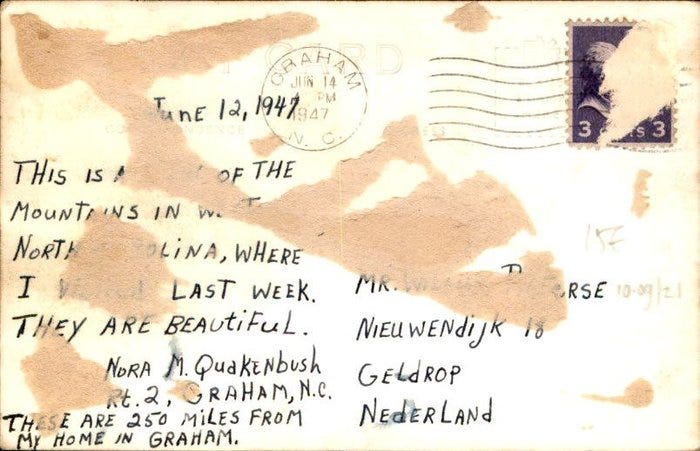 POST CARD
GRAHAM
JUN 14
PM
1947
N. C.
3 CENTS 3
June 12, 1947
THIS IS A OF THE
MOUNTAINS IN
NORTH CAROLINA, WHERE
I LAST WEEK.
THEY ARE BEAUTIFUL.
NORA M. QUAKENBUSH
Rt. 2, GRAHAM, N.C.
THESE ARE 250 MILES FROM
MY HOME IN GRAHAM.
MR.
NIEUWENDIJK 18
GELDROP
NEDERLAND